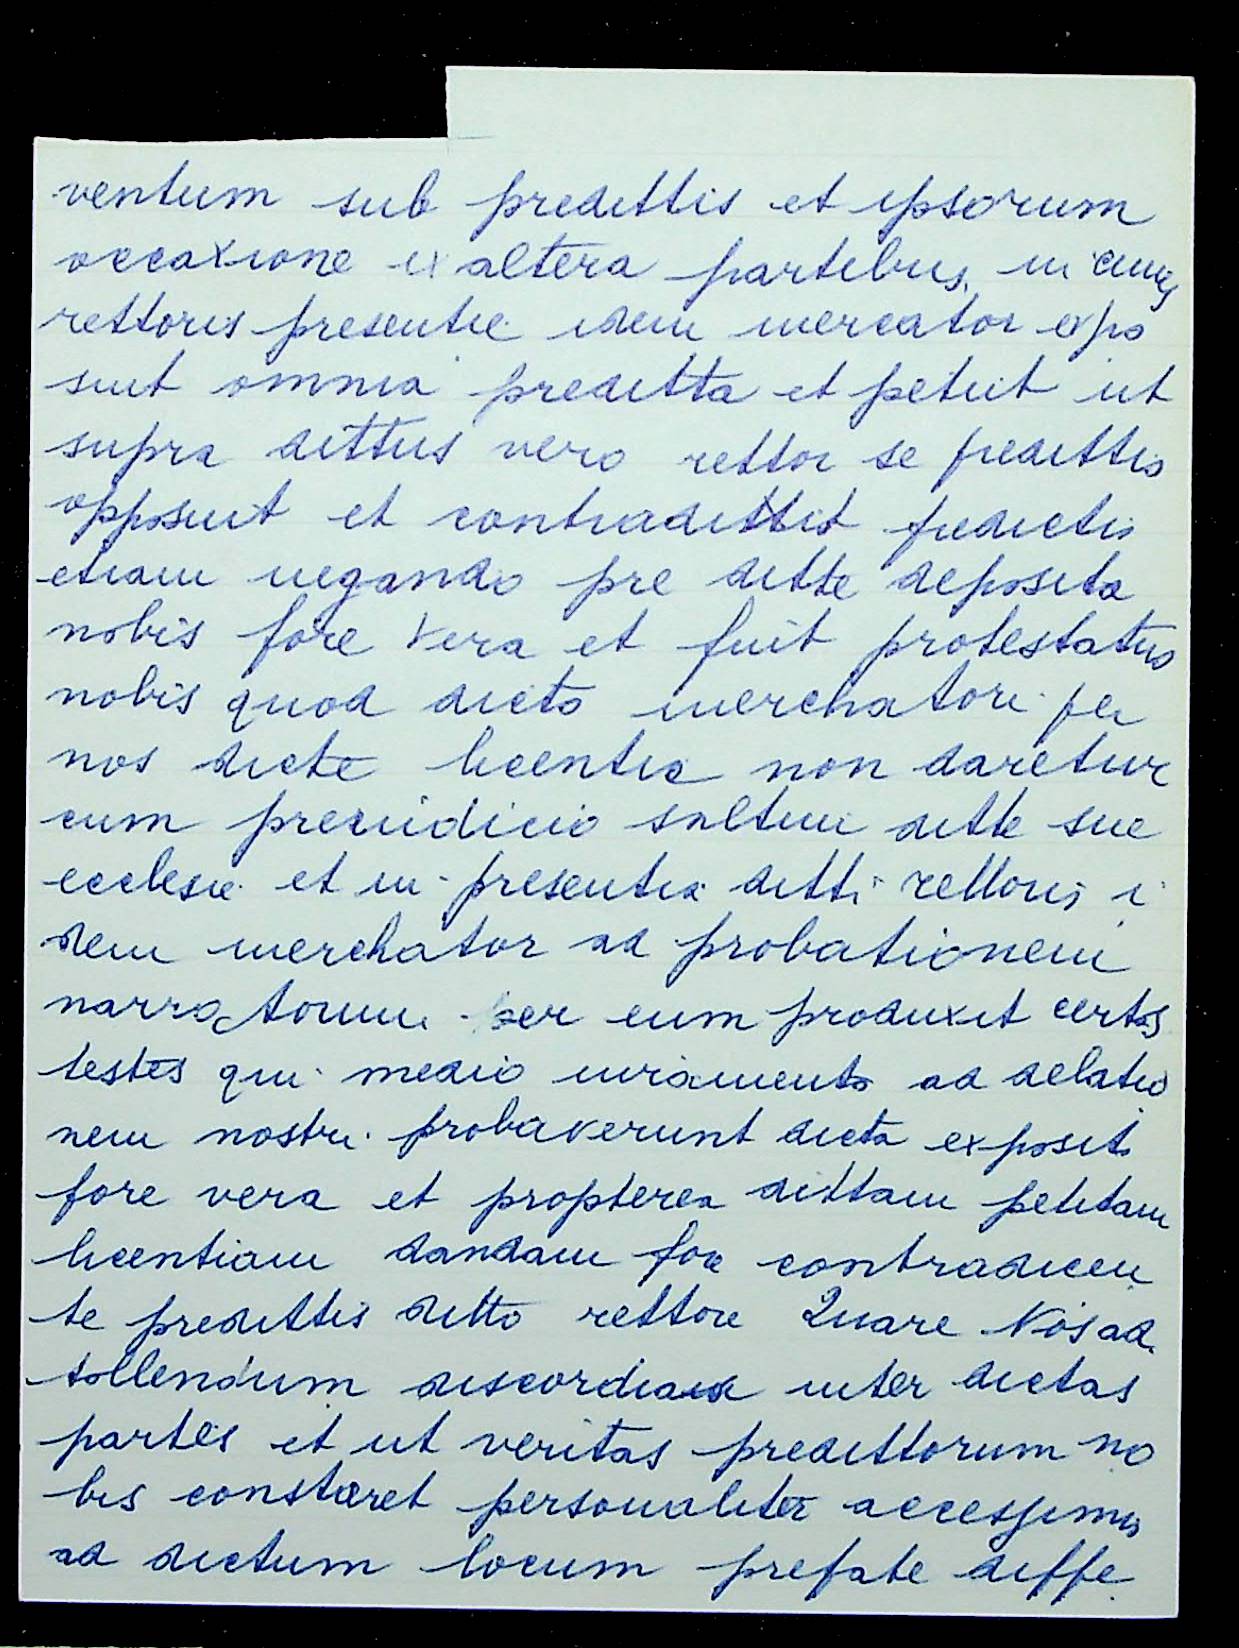 ventum sub predittis et ipsorum
occaxione ex altera partibus, in cuius
rettoris presentie idem mercator expo
suit omnia preditta et petiit ut
supra dittus vero rettor se predittis
opposuit et contradittit predictis
etiam negando pre ditte deposita
nobis fore vera et fuit protestatus
nobis quod dicto merchatori per
nos dicte licentie non daretur
cum preiudicio saltim ditte sue
ecclesie et in presentia ditti rettoris i
dem merchator ad probationem
narratorum per eum produxit certos
testes qui medio iuramento ad delatio
nem nostri probaverunt dicta exposita
fore vera et propterea dittam petitam
licentiam dandam fore contradicen
te predittis ditto rettore Quare Nos ad
tollendum discordias inter dictas
partes et ut veritas predittorum no
bis constaret personaliter accessimus
ad dictum locum prefate diffe